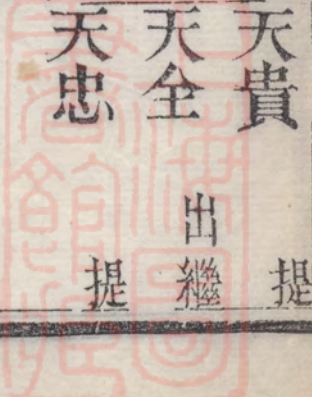 天貴 提
天全 出繼
天忠 提